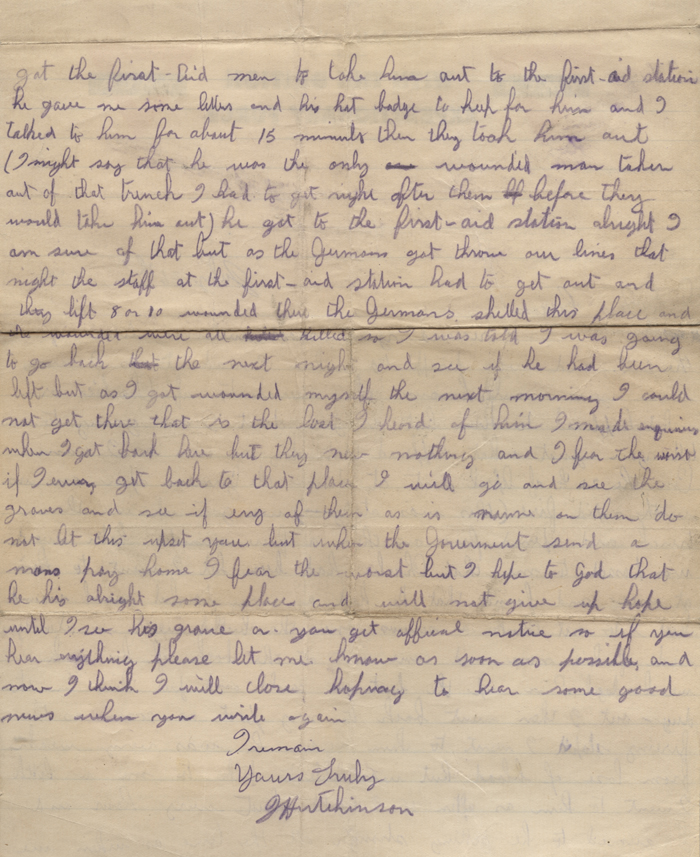 got the first-aid men to take him aut to the first-aid station
he gave me some letters and his hat badge to keep for him and I
talked to him for about 15 minuts then they took him aut
(I might say that he was the only wounded man taken
aut of that trench I had to get right after them before they
would take him aut) he got to the first-aid station alright I
am sure of that but as the Germans got throue our lines that
night the staff at the first-aid station had to get aut and
they lift 8 or 10 wounded there the Germans shelled this place and
the wounded were all killed so I was told I was going
to go back the next night and see if he had been
lift but as I got wounded myself the next morning I could
not get there that is the last I heard of him I made enquiries
when I got back here but they new nothing and I fear the worst
if I get back to that place I will go and see the
graves and see if eny of them as is name on them do
not let this upset you but when the Goverment send a
mans pay home I fear the worst but I hope to God that
he his alright some place and will not give up hope
until I see his grave or you get official notice so if you
hear enything please let me know as soon as possible, and
now I think I will close hopeing to hear some good
news when you write again
I remain
Yours Truly
J Hutchinson